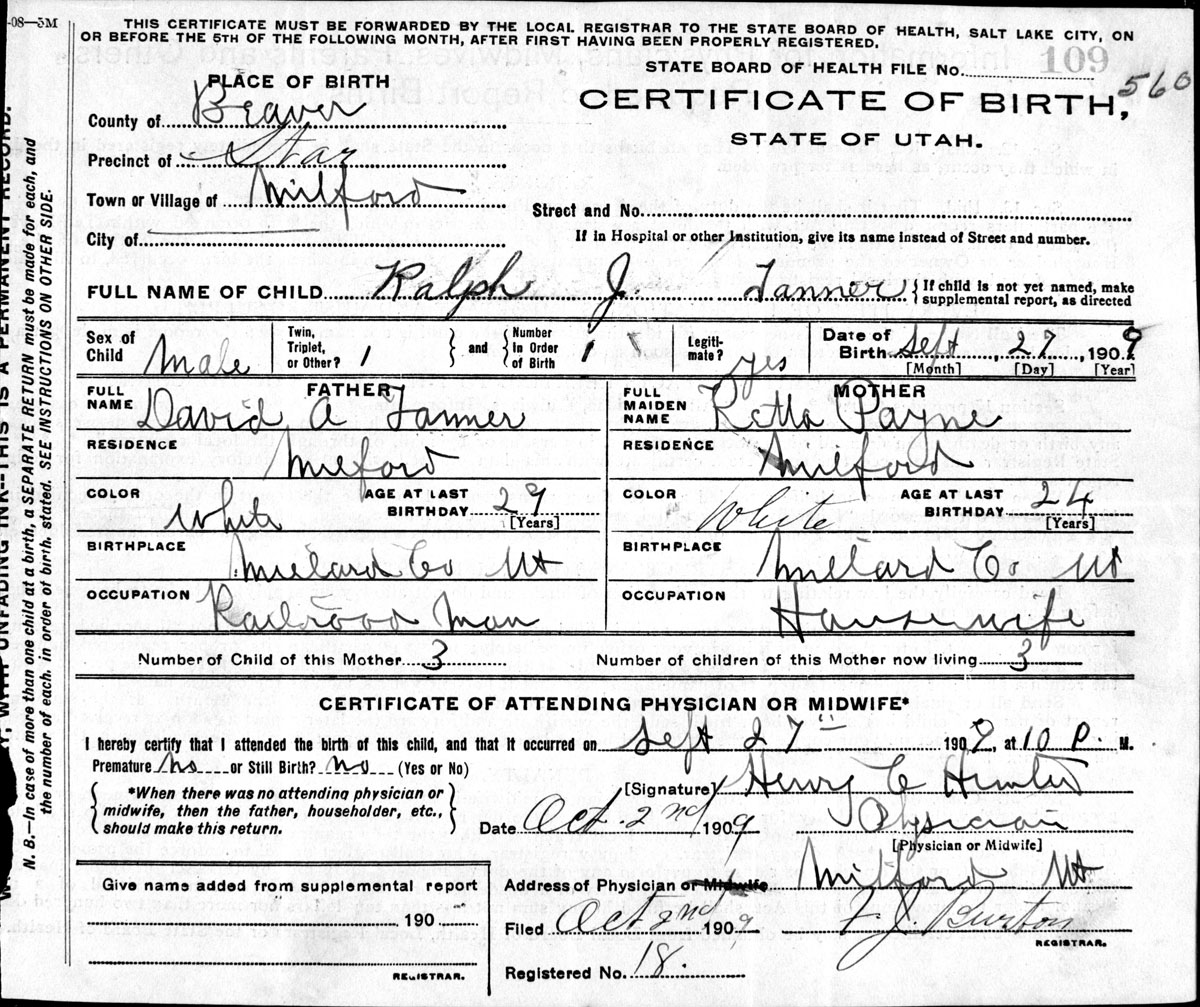 -08—3M
THIS CERTIFICATE MUST BE FORWARDED BY THE LOCAL REGISTRAR TO THE STATE BOARD OF HEALTH, SALT LAKE CITY, ON
OR BEFORE THE 5TH OF THE FOLLOWING MONTH, AFTER FIRST HAVING BEEN PROPERLY REGISTERED.
STATE BOARD OF HEALTH FILE No. 109
560
CERTIFICATE OF BIRTH,
STATE OF UTAH.
PLACE OF BIRTH
County of Beaver
Precinct of Star
Town or Village of Milford
City of
Street and No.
If in Hospital or other Institution, give its name instead of Street and number.
FULL NAME OF CHILD Ralph J. Tanner { If child is not yet named, make supplemental report, as directed
Sex of Child Male Twin, Triplet, or Other? 1 } and { Number In Order of Birth 1 Legiti-mate? yes Date of Birth Sept, 27, 1909
[Month] [Day] [Year]
FATHER
FULL NAME David A Tanner
RESIDENCE Milford
COLOR White AGE AT LAST BIRTHDAY 29
[Years]
BIRTHPLACE Millard Co Ut
OCCUPATION Railrood Man
MOTHER
FULL MAIDEN NAME Retta Payne
RESIDENCE Milford
COLOR White AGE AT LAST BIRTHDAY 24
[Years]
BIRTHPLACE Millard Co Ut
OCCUPATION Housewife
Number of Child of this Mother 3 Number of children of this Mother now living 3
CERTIFICATE OF ATTENDING PHYSICIAN OR MIDWIFE*
I hereby certify that I attended the birth of this child, and that it occurred on Sept 27" 1909, at 10 P. M.
Premature no or Still Birth? no (Yes or No)
{ *When there was no attending physician or midwife, then the father, householder, etc., should make this return. }
[Signature] Henry C Hunter
Date Oct. 2nd/1909 Physician
[Physician or Midwife]
Address of Physician or Midwife Milford Ut
Filed Oct 2nd 1909 J. Burton
REGISTRAR.
Registered No. 18.
Give name added from supplemental report
190
REGISTRAR.
WITH UNFADING INK--THIS IS A PERMANENT RECORD.
N. B.—In case of more than one child at a birth, a SEPARATE RETURN must be made for each, and
the number of each, in order of birth, stated. SEE INSTRUCTIONS ON OTHER SIDE.